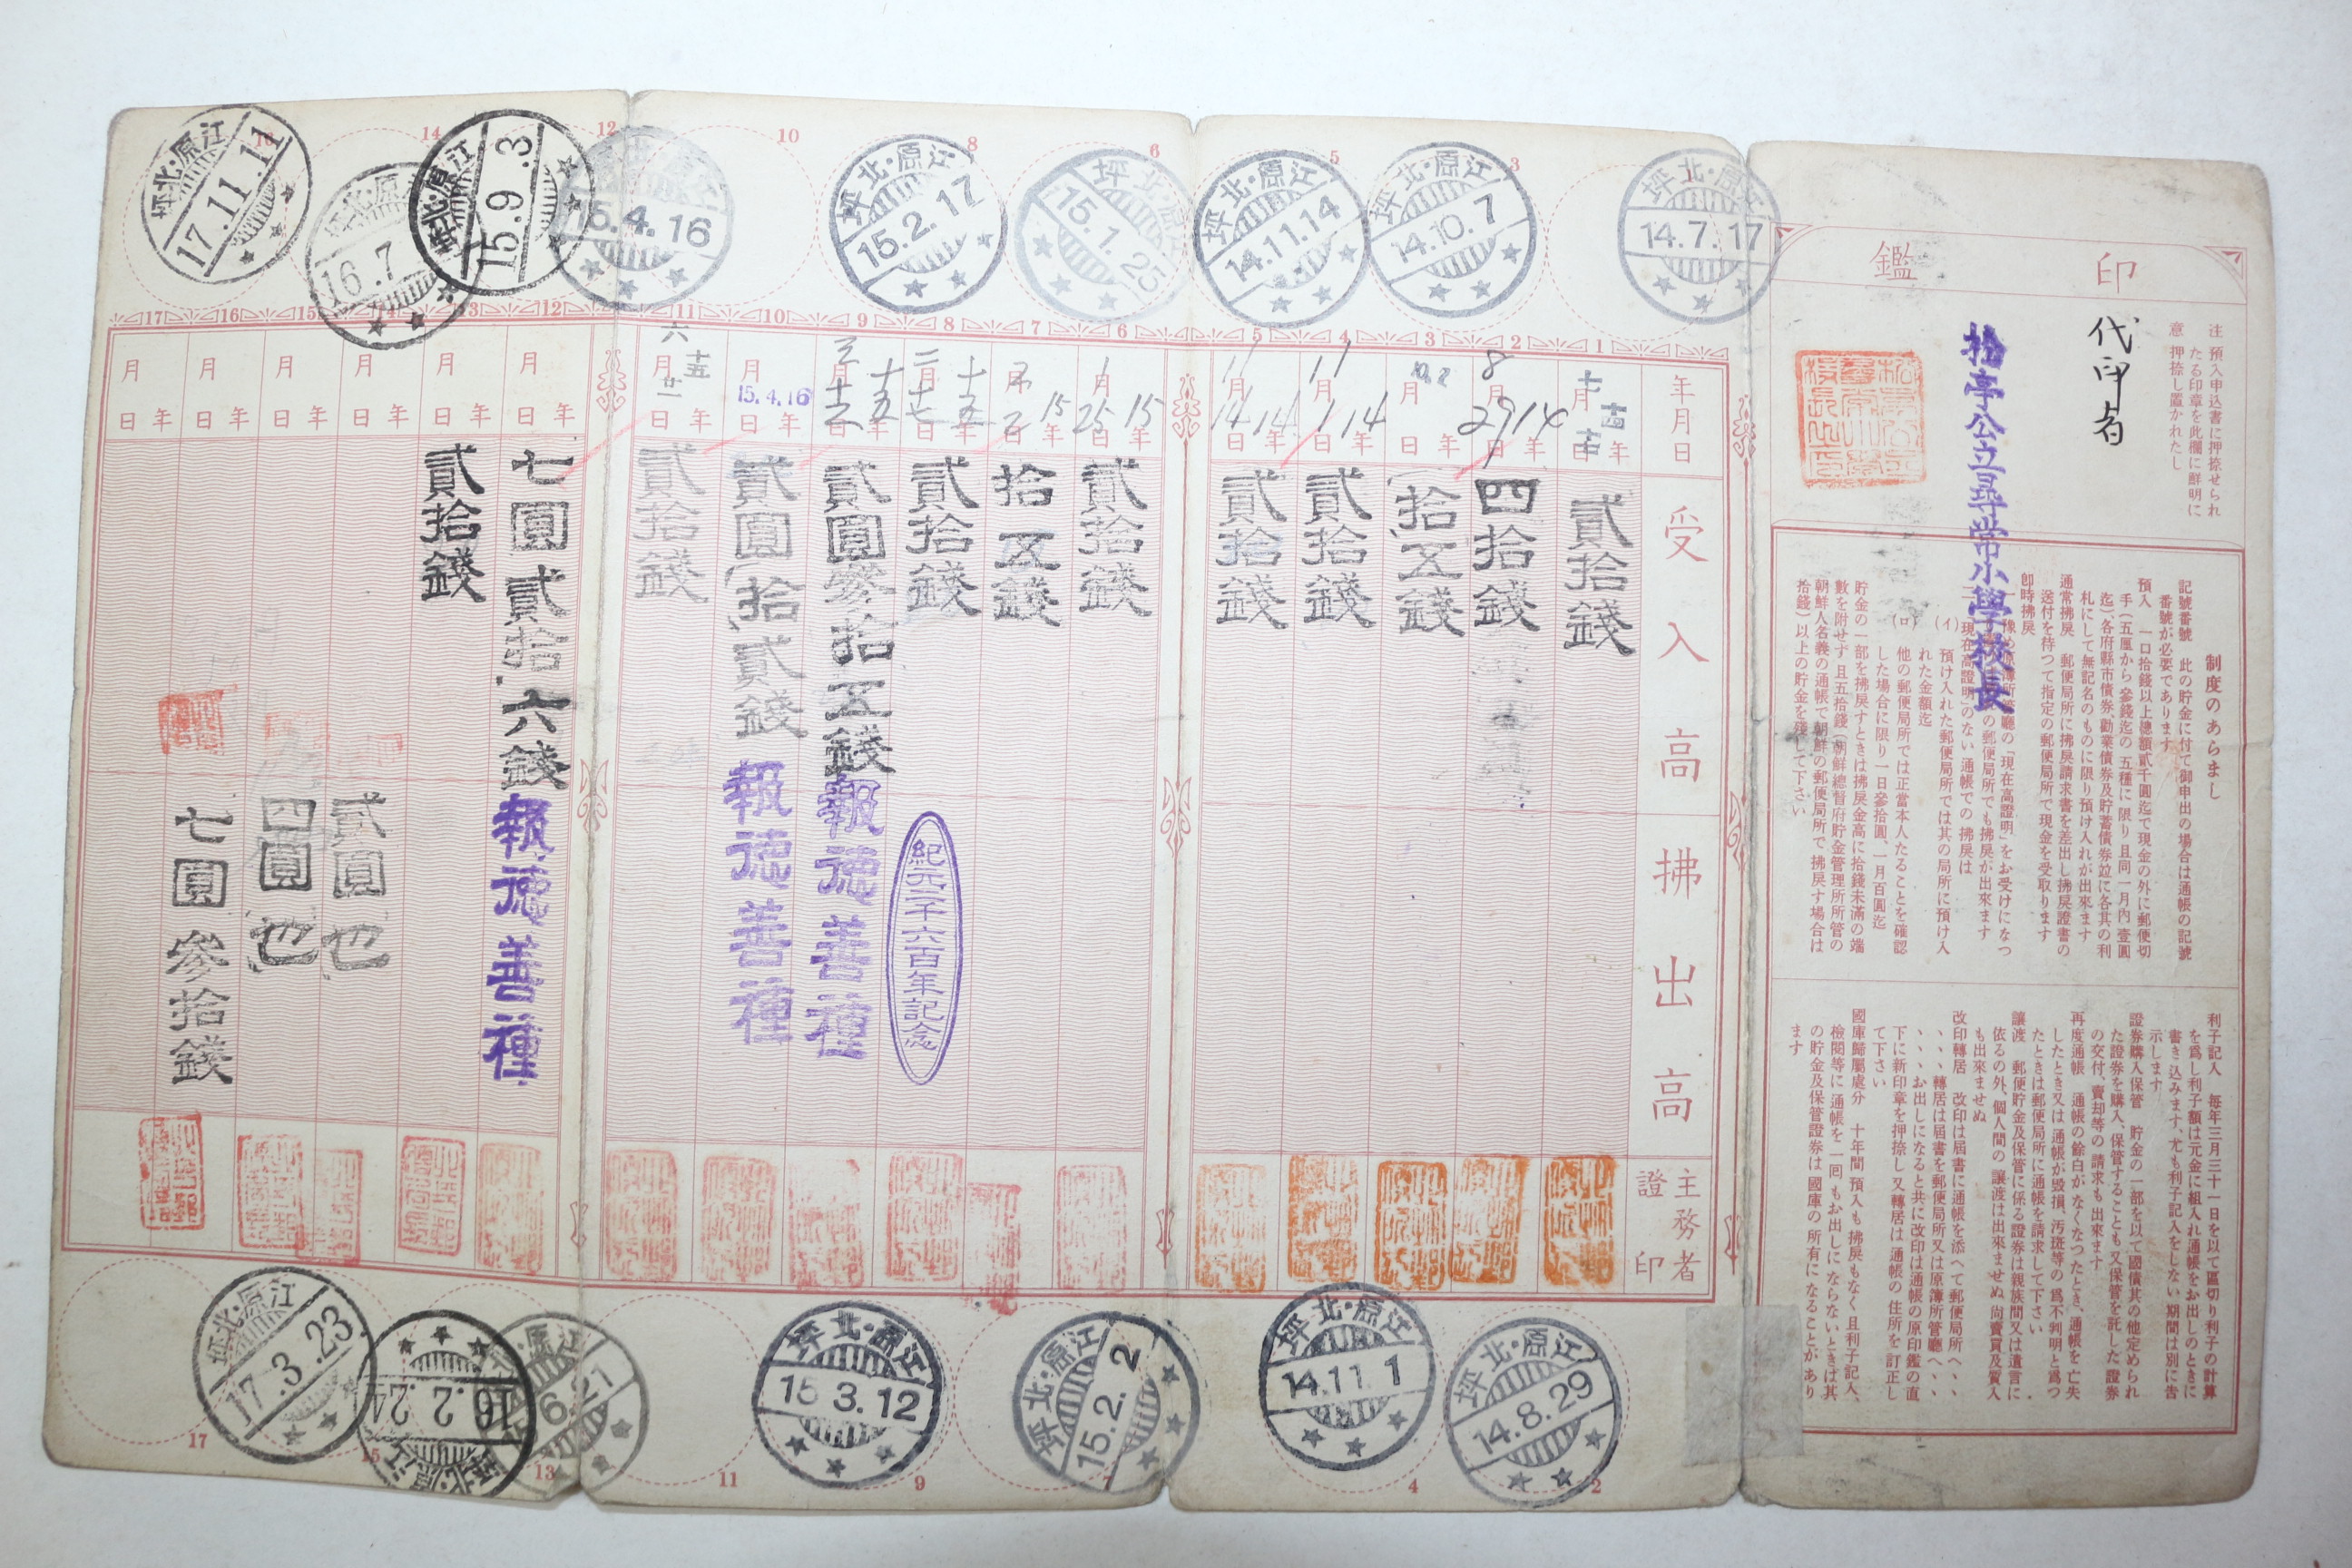 印鑑
注意 預入申込書に押捺せられ
たる印章を此欄に鮮明に
押捺し置かれたし
代印者
拾亭公立尋常小學校長
制度のあらまし
記號番號 此の貯金に付て御申出の場合は通帳の記號
番號が必要であります
預入 一口拾錢以上總額貳千圓迄で現金の外に郵便切
手(五厘から參錢迄の五種に限り且同一月內壹圓
迄)各府縣市債券勸業債券及貯蓄債券竝に各其の利
札にして無記名のものに限り預け入れが出來ます
通常拂戾 郵便局所に拂戾請求書を差出し拂戾證書の
送付を待つて指定の郵便局所で現金を受取ります
卽時拂戾
の郵便局所でも拂戾が出來ます
(イ)
現在高證明」のない通帳での拂戾は
預け入れた郵便局所では其の局所に預け入
れた金額迄
(ロ)
他の郵便局所では正當本人たることを確認
した場合に限り一日參拾圓、一月百圓迄
貯金の一部を拂戾すときは拂戾金高に拾錢未滿の端
數を附せず且五拾錢(朝鮮總督府貯金管理所所管の
朝鮮人名義の通帳で朝鮮の郵便局所で拂戾す場合は
拾錢)以上の貯金を殘して下さい
利子記入 每年三月三十一日を以て區切り利子の計算
を爲し利子額は元金に組入れ通帳をお出しのときに
書き込みます、尤も利子記入をしない期間は別に告
示します
證券購入保管 貯金の一部を以て國債其の他定められ
た證券を購入、保管することも又保管を託した證券
の交付、賣却等の請求も出來ます
再度通帳 通帳の餘白がなくなつたとき、通帳を亡失
したとき又は通帳が毀損、汚斑等の爲不判明と爲つ
たときは郵便局所に通帳を請求して下さい
讓渡 郵便貯金及保管に係る證券は親族間又は遺言に
依るの外、個人間の讓渡は出來ませぬ尙賣買及質入
も出來ませぬ
改印轉居 改印は屆書に通帳を添へて郵便局所へ、、
、、轉居は屆書を郵便局所又は原簿所管廳へ、、
、、お出しになると共に改印は通帳の原印鑑の直
下に新印章を押捺し又轉居は通帳の住所を訂正し
て下さい
國庫歸屬處分 十年間預入も拂戾もなく且利子記入、
檢閱等に通帳を一囘もお出しにならないときは其
の貯金及保管證券は國庫の所有になることがあり
ます
年月日
受入高
拂出高
主務者證印
1
年月日
貳拾錢
江原·北坪
14.7.17
2
8
29 14
年月日
四拾錢
江原·北坪
14.8.29
3
10.7
年月日
拾五錢
江原·北坪
14.10.7
4
11
1 14
年月日
貳拾錢
江原·北坪
14.11.1
5
11
14 14
年月日
貳拾錢
江原·北坪
14.11.14
6
1
25 15
年月日
貳拾錢
江原·北坪
15.1.25
7
2
2 15
年月日
拾五錢
江原·北坪
15.2.2
8
二
十七
十五
年月日
貳拾錢
紀元二千六百年記念
江原·北坪
15.2.17
9
三
十二
十五
年月日
貳圓參拾五錢
報德善種
江原·北坪
15.3.12
10
15.4.16
年月日
貳圓拾貳錢
報德善種
江原·北坪
15.4.16
11
六
廿一
十五
年月日
貳拾錢
6.21
12
年月日
七圓貳拾六錢
報德善種
江原·北坪
15.9.3
13
年月日
貳拾錢
江原·北坪
16.2.24
14
年月日
貳圓也
北·原
16.7
15
年月日
四圓也
江原·北坪
17.3.23
16
年月日
七圓參拾錢
江原·北坪
17.11.11
17
年月日